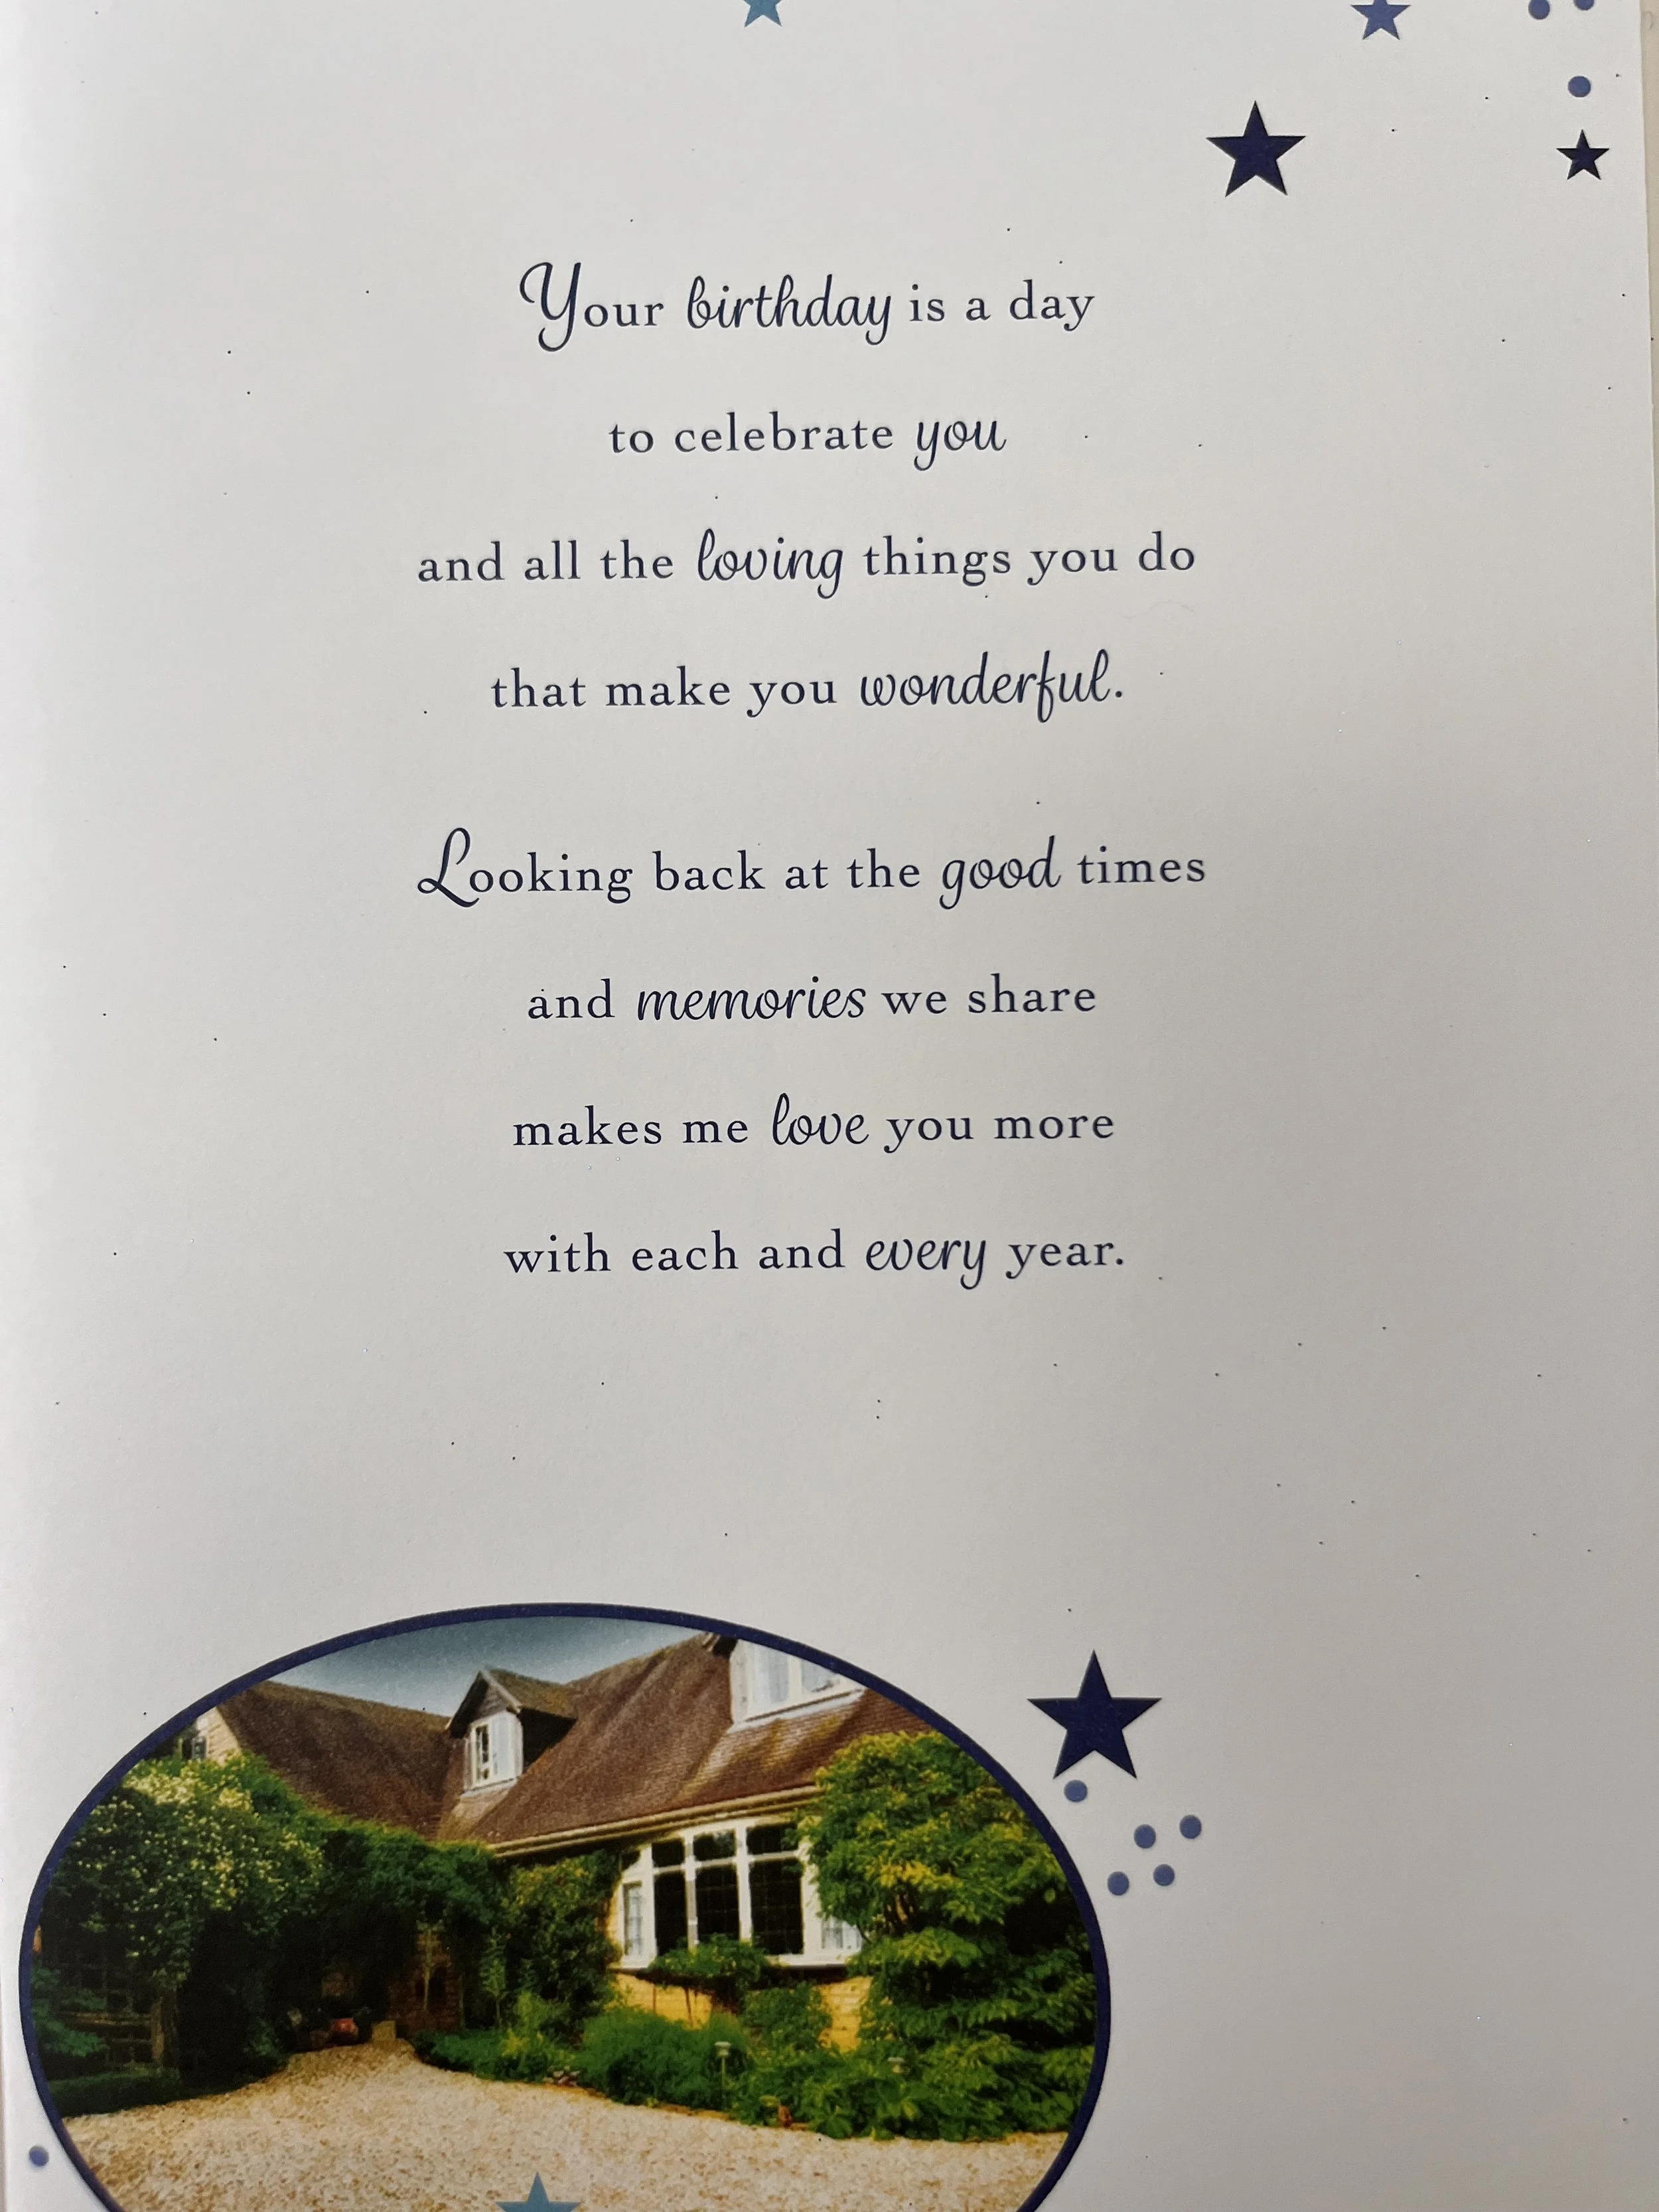 Your birthday is a day
to celebrate you
and all the loving things you do
that make you wonderful.
Looking back at the good times
and memories we share
makes me love you more
with each and every year.